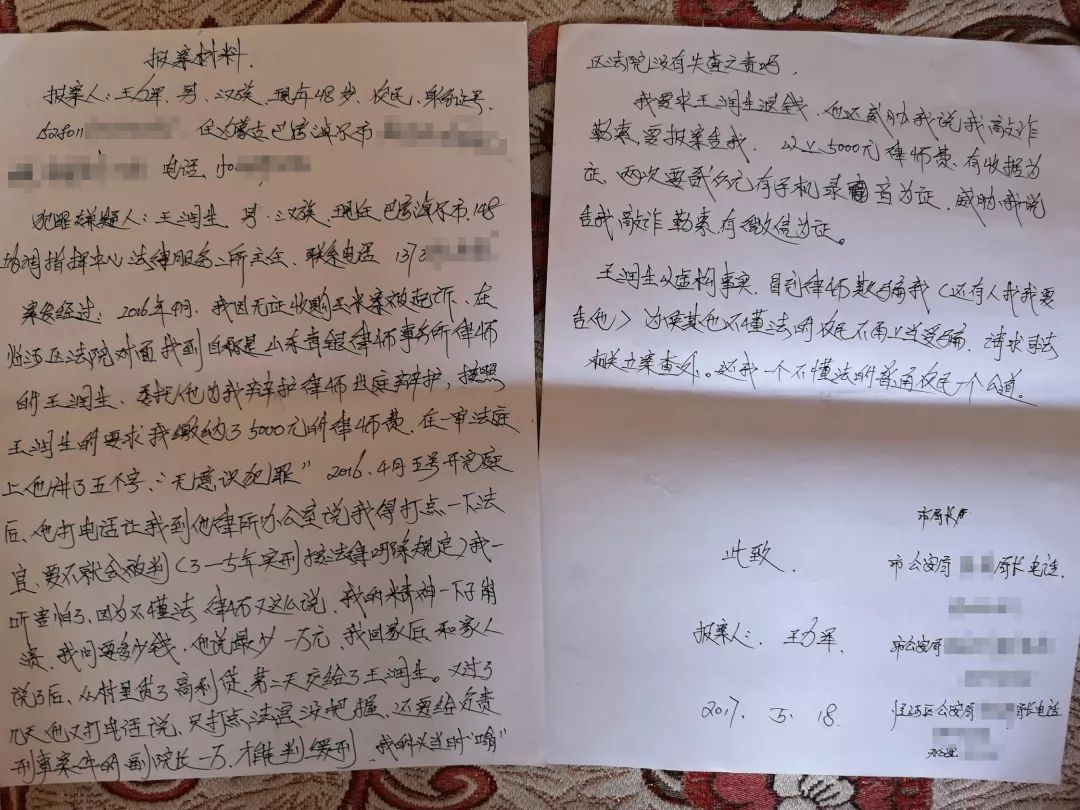 报案材料.
报案人: 王力军, 男, 汉族, 现年48岁, 农民, 身份证号,
152801 住内蒙古巴彦淖尔市
电话, 150
犯罪嫌疑人: 王润生, 男, 汉族, 现任巴彦淖尔市, 148
协调指挥中心法律服务二所主任, 联系电话 1373
案发经过: 2016年4月, 我因无证收购玉米案被起诉, 在
临河区法院对面找到自称是山东青银律师事务所律师
的王润生, 委托他为我辩护律师出庭辩护, 按照
王润生的要求我缴纳了5000元的律师费, 在一审法庭
上他讲了五个字,:“无意识犯罪” 2016.4月五号开完庭
后, 他打电话让我到他律所办公室说我得打点一下法
官, 要不就会被判(3—5年实刑按法律明条规定)我一
听害怕了, 因为不懂法 律师又这么说, 我的精神一下子崩
溃, 我问要多少钱, 他说最少一万元, 我回家后, 和家人
说了后, 从村里贷了高利贷, 第二天交给了王润生。又过了
几天他又打电话说, 只打点法官没把握, 还要给负责
刑事案件的副院长一万, 才能判缓刑, 我的义当时“嗡”
区法院没有失查之责吗,
我要求王润生退钱, 他还威胁我说我敲诈
勒索, 要报案告我, 以上5000元律师费, 有收据为
证, 两次要贰万元有手机录音为证, 威胁我说
告我敲诈勒索, 有微信为证。
王润生以虚构事实, 冒充律师欺骗我(还有人找我要
告他) 为使其他不懂法的农民不再上当受骗, 请求司法
相关立案查处。还我一个不懂法的普通农民一个公道。
此致,
报案人: 王力军,
2017. 5. 18.
市局长
市公安局 局长电话,
市公安局
临河区公安局 局长电话
办公室